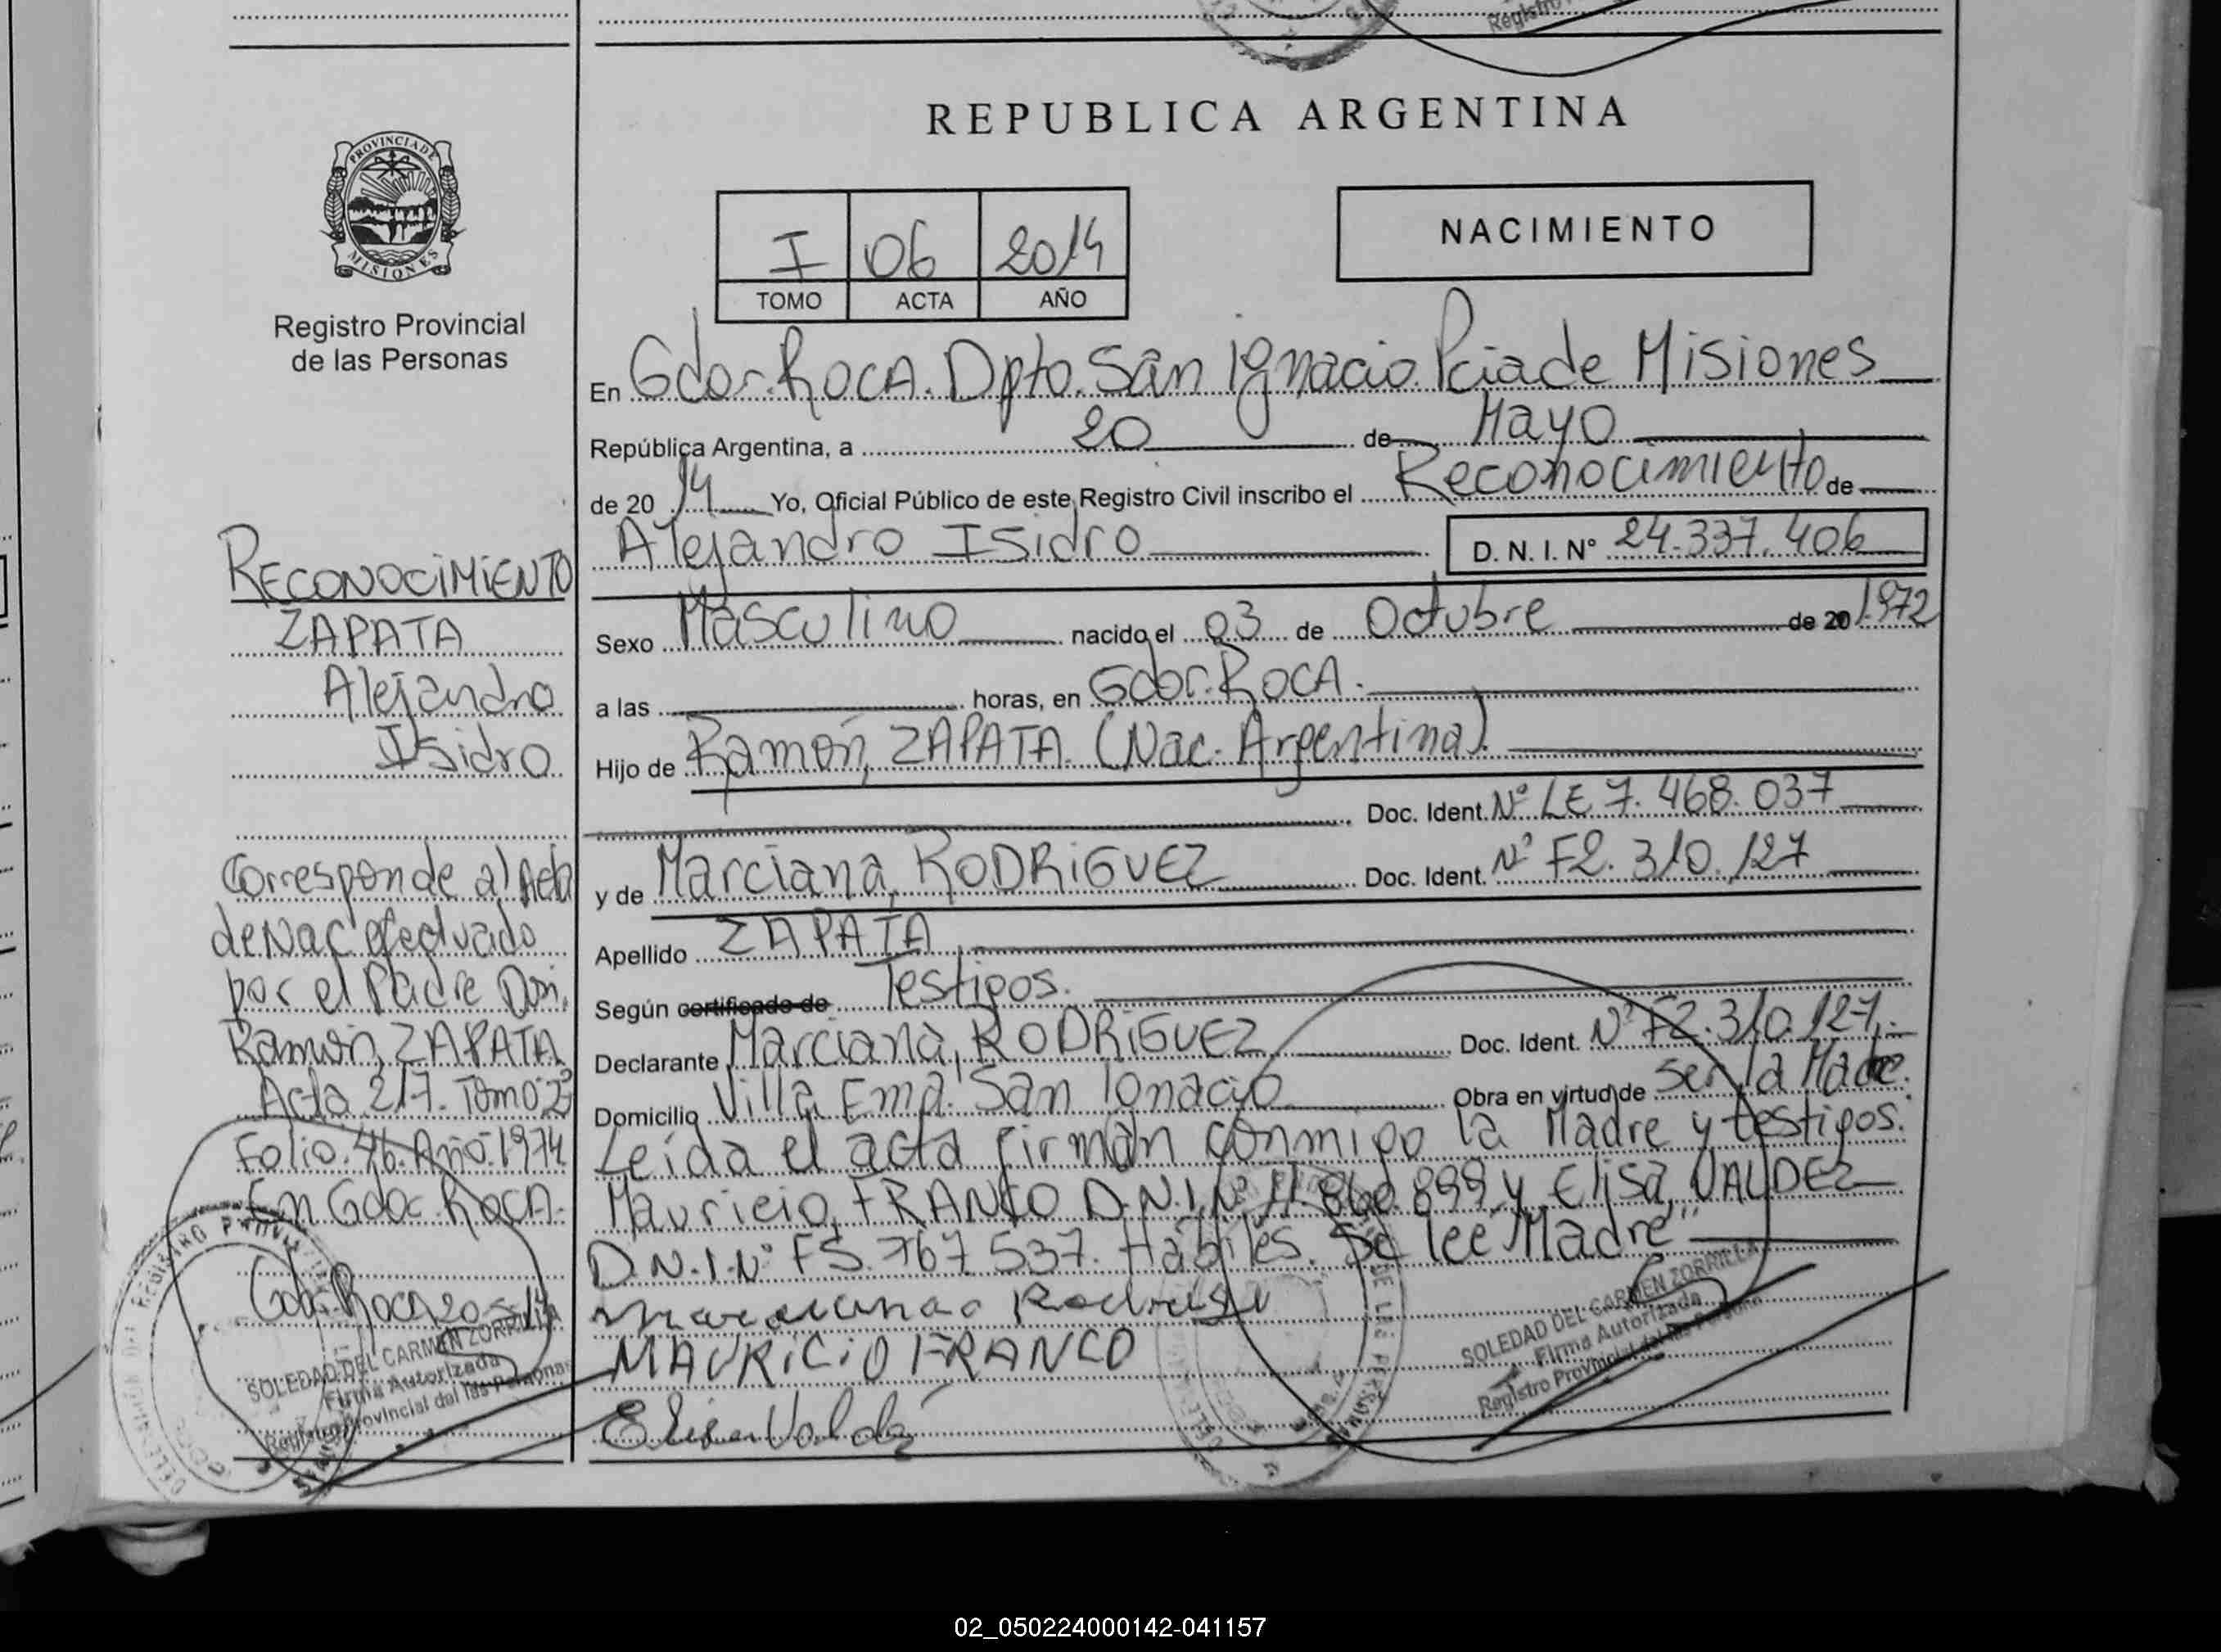 REPUBLICA ARGENTINA
PROVINCIA DE
MISIONES
Registro Provincial
de las Personas
I 06 2014
TOMO ACTA AÑO
NACIMIENTO
En Gdor. ROCA. Dpto. San Ignacio. Pcia de Misiones
República Argentina, a 20 de Mayo
de 20 14 Yo, Oficial Público de este Registro Civil inscribo el Reconocimiento de
Alejandro Isidro D. N. I. N° 24.337.406
Sexo Masculino nacido el 03 de Octubre de 20 1972
a las horas, en Gdor. ROCA.
Hijo de Ramón, ZAPATA. (Nac. Argentina).
Doc. Ident. N° LE 7.468.037
y de Marciana, RODRIGUEZ Doc. Ident. N° F2.310.127
Apellido ZAPATA
Según certificado de Testigos.
Declarante Marciana, RODRIGUEZ Doc. Ident. N° F2.310.127.-
Domicilio Villa Ema. San Ignacio Obra en virtud de Ser la Madre.
Leída el acta firman conmigo la Madre y testigos.
Mauricio, FRANCO D.N.I.N° 11.860.899 y Elisa, VALDEZ
D.N.I.N° F5.767.537. Hábiles. Se lee "Madre"
Marciana Rodrigue
MAURICIO FRANCO
Elisa Valdez
SOLEDAD DEL CARMEN ZORRILLA
Firma Autorizada
Registro Provincial de las Personas
RECONOCIMIENTO
ZAPATA
Alejandro
Isidro
Corresponde al Acta
de Nac efectuado
por el Padre Don,
Ramón, ZAPATA
Acta 217. Tomo 2°
Folio. 46. Año. 1974
En Gdor. ROCA.
Gdor. Roca 20-5-14
SOLEDAD DEL CARMEN ZORRILLA
Firma Autorizada
Registro Provincial de las Personas
02_050224000142-041157